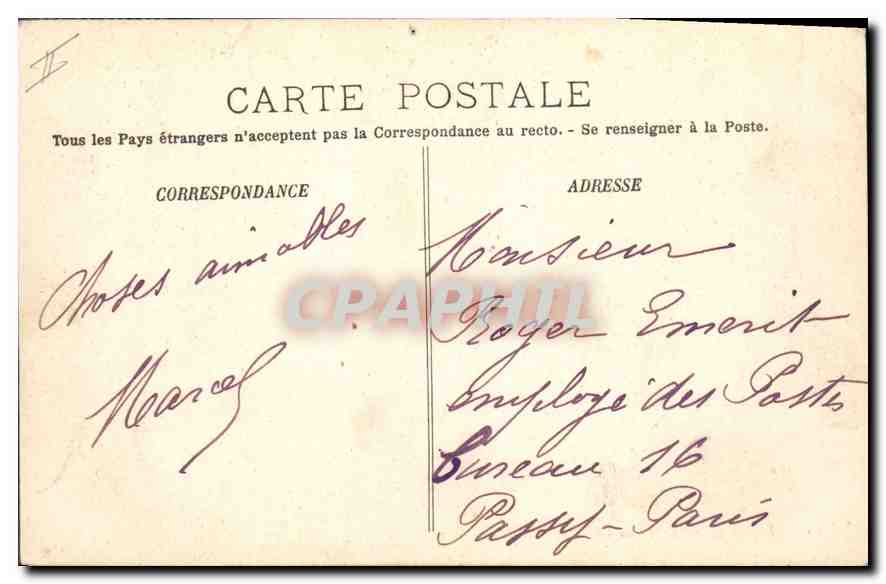 II
CARTE POSTALE
Tous les Pays étrangers n'acceptent pas la Correspondance au recto. - Se renseigner à la Poste.
CORRESPONDANCE
Choses aimables
Marcel
ADRESSE
Monsieur
Roger Emerit
employé des Postes
bureau 16
Passy-Paris
CPAPHIL